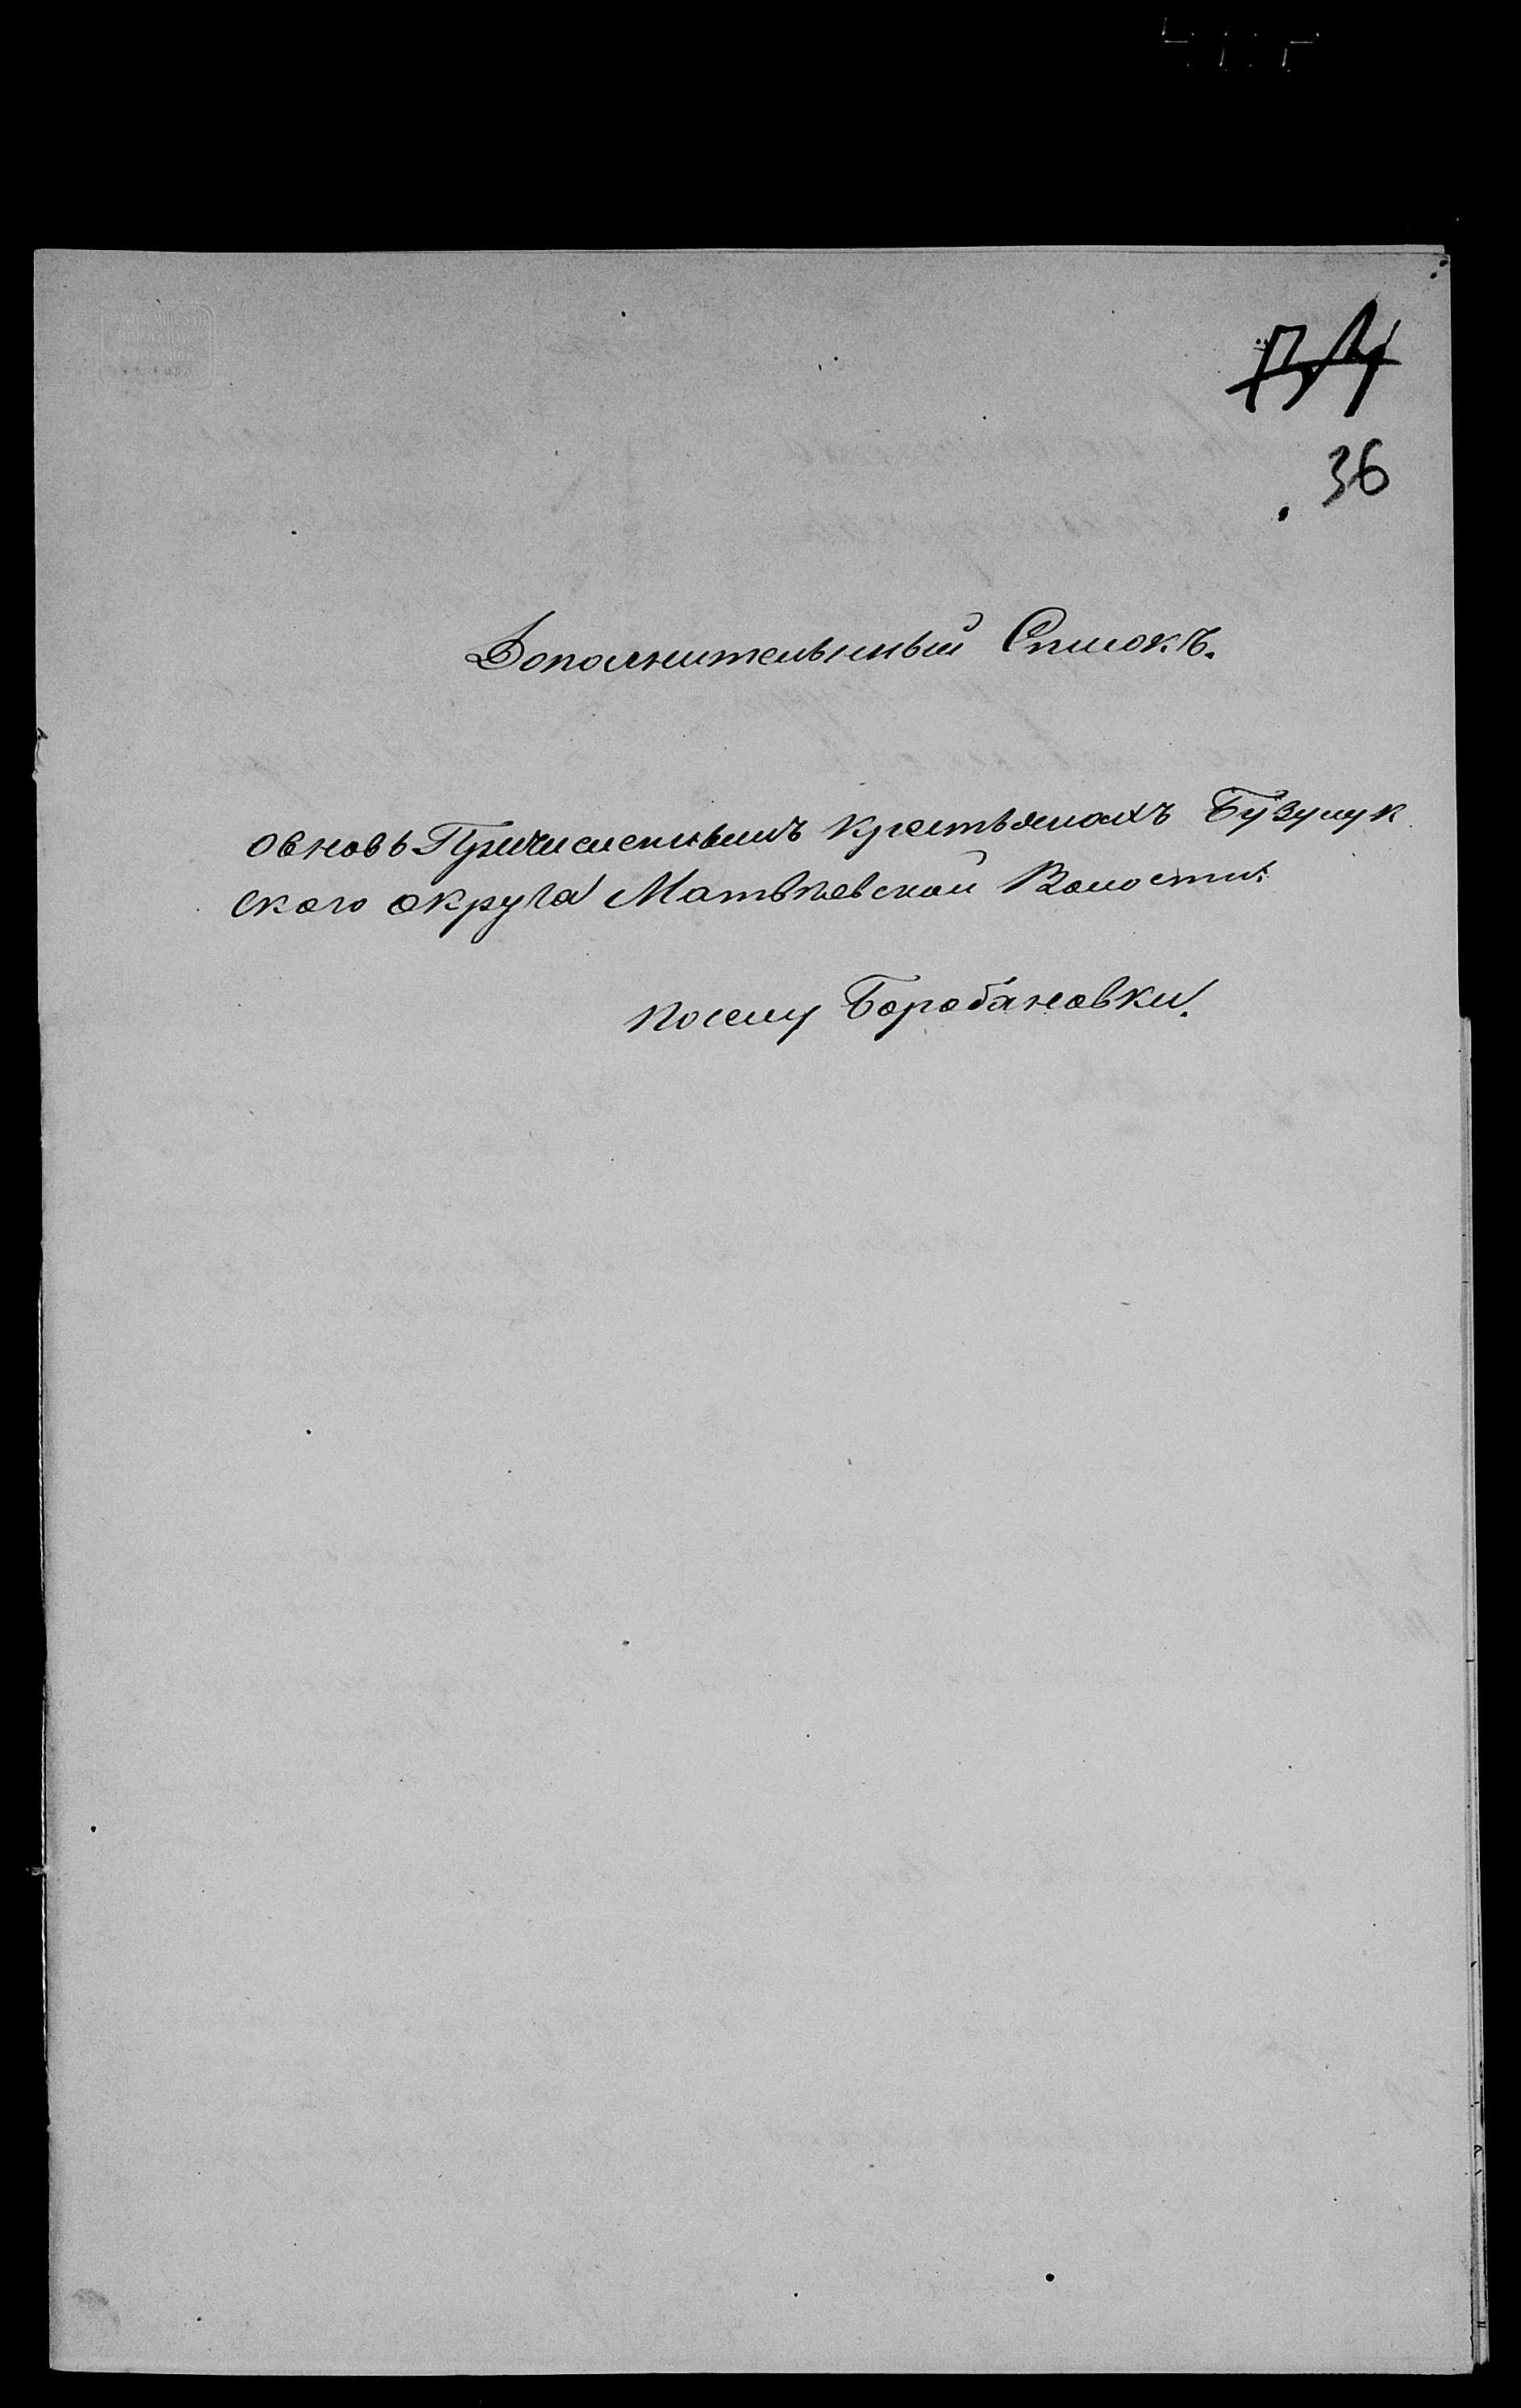 36
Дополнительный Списокъ.
овновь Причисленнымъ крестьянахъ Бузулук
ского округа Матвѣевской Волости.
поселу Боробановки.